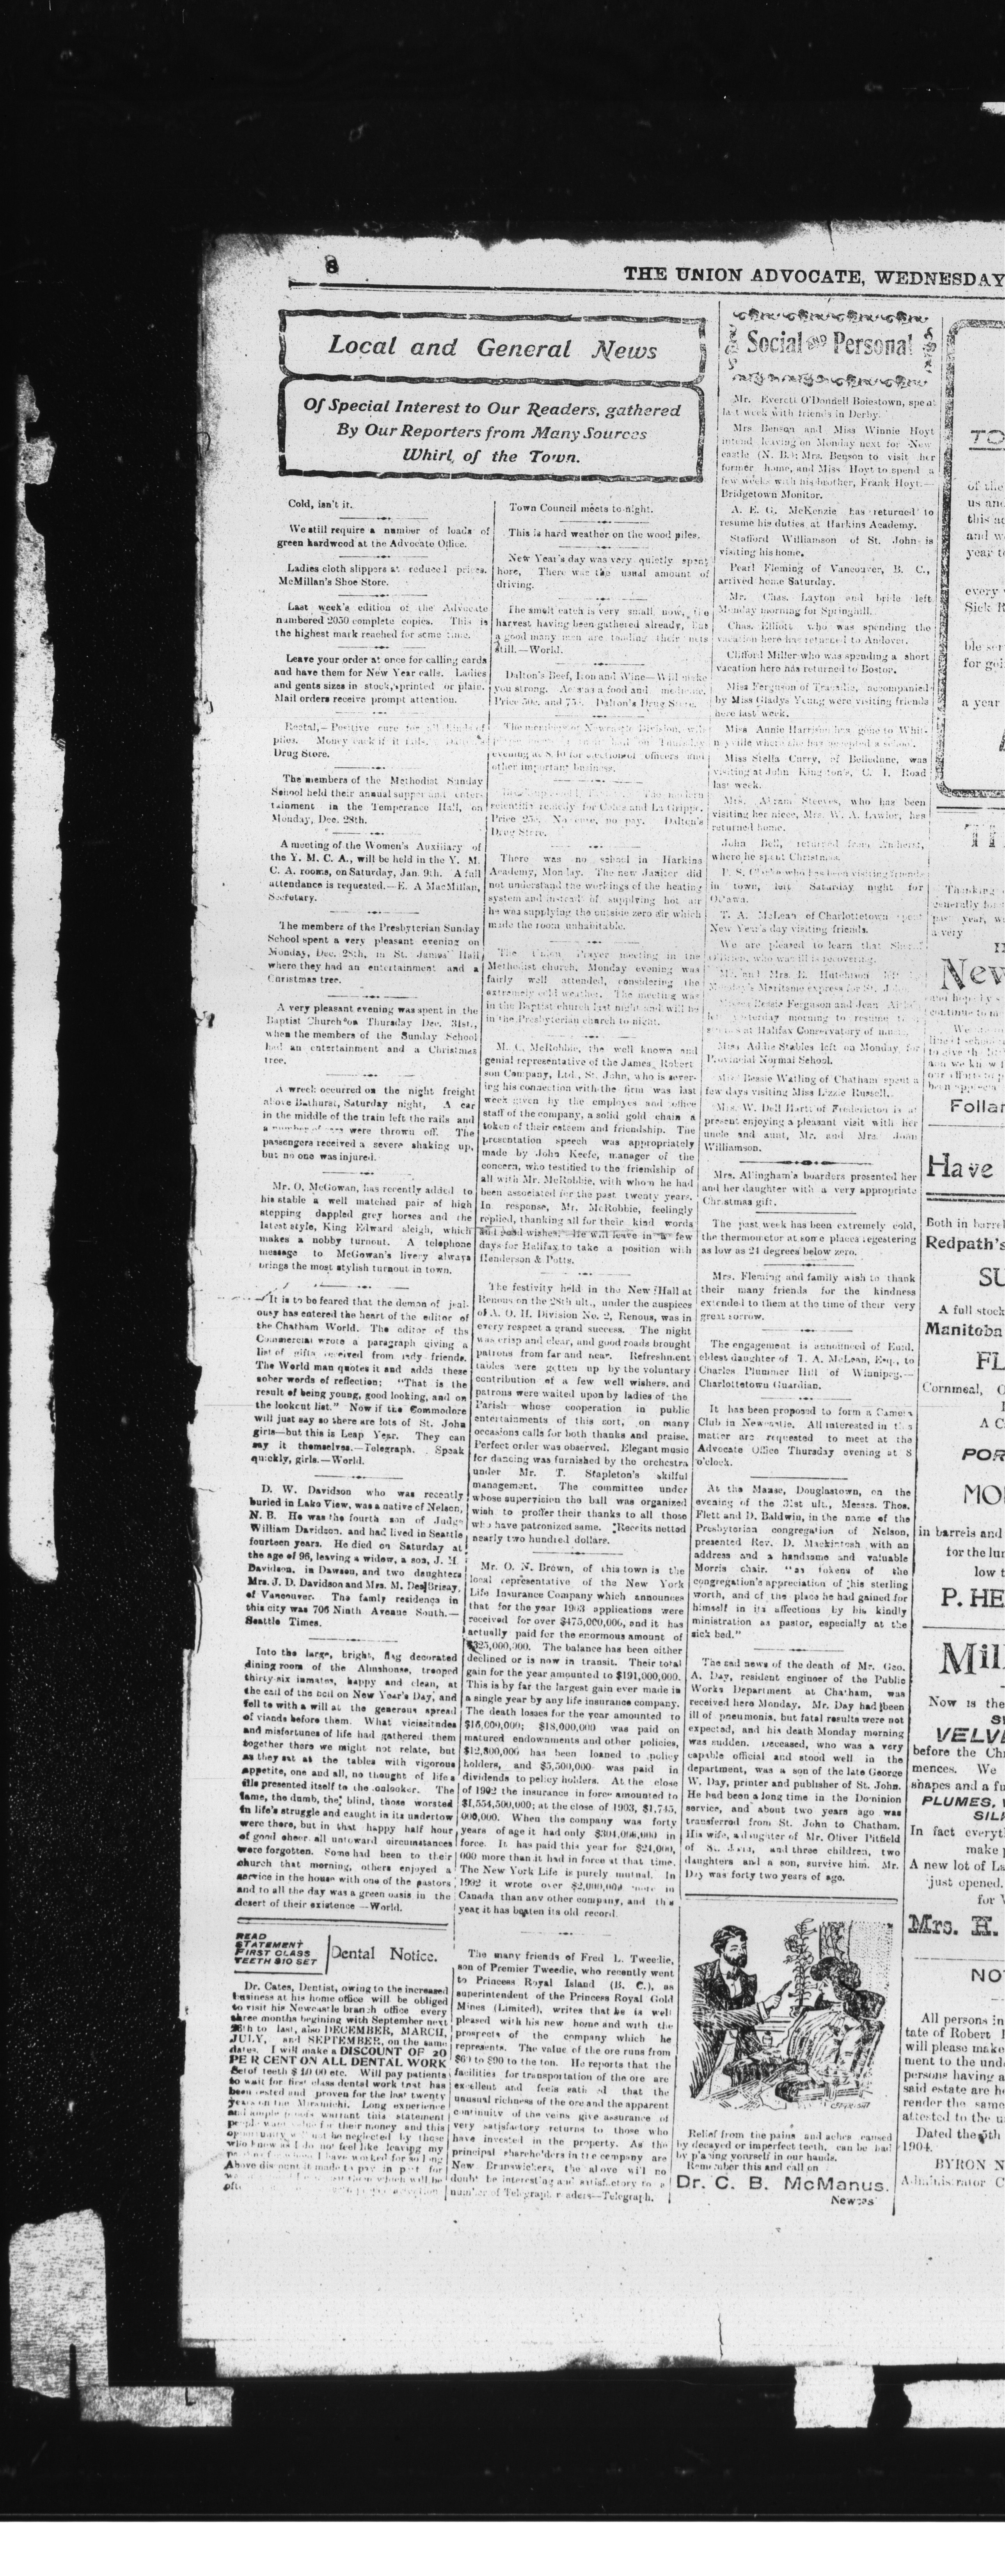 8
THE UNION ADVOCATE, WEDNESDAY
Local and General News
Of Special Interest to Our Readers, gathered
By Our Reporters from Many Sources
Whirl of the Town.
Cold, isn't it.
We still require a number of loads of
green hardwood at the Advocate Office.
Ladies cloth slippers at reduced prices.
McMillan's Shoe Store.
Last week's edition of the Advocate
numbered 2050 complete copies. This is
the highest mark reached for some time.
Leave your order at once for calling cards
and have them for New Year calls. Ladies
and gents sizes in stock, printed or plain.
Mail orders receive prompt attention.
Rectal,—Positive cure for all kinds of
piles. Money back if it fails.
Drug Store.
The members of the Methodist Sunday
School held their annual supper and enter-
tainment in the Temperance Hall, on
Monday, Dec. 28th.
A meeting of the Women's Auxiliary of
the Y. M. C. A., will be held in the Y. M.
C. A. rooms, on Saturday, Jan. 9th. A full
attendance is requested.—E. A MacMillan,
Secretary.
The members of the Presbyterian Sunday
School spent a very pleasant evening on
Monday, Dec. 28th, in St. James' Hall
where they had an entertainment and a
Christmas tree.
A very pleasant evening was spent in the
Baptist Church on Thursday Dec. 31st.,
when the members of the Sunday School
had an entertainment and a Christmas
tree.
A wreck occurred on the night freight
above Bathurst, Saturday night, A car
in the middle of the train left the rails and
a number of cars were thrown off. The
passengers received a severe shaking up,
but no one was injured.
Mr. O. McGowan, has recently added to
his stable a well matched pair of high
stepping dappled grey horses and the
latest style, King Edward sleigh, which
makes a nobby turnout. A telephone
message to McGowan's livery always
brings the most stylish turnout in town.
It is to be feared that the demon of jeal-
ousy has entered the heart of the editor of
the Chatham World. The editor of the
Commercial wrote a paragraph giving a
list of gifts received from lady friends.
The World man quotes it and adds these
sober words of reflection: "That is the
result of being young, good looking, and on
the lookout list." Now if the Commodore
will just say so there are lots of St. John
girls—but this is Leap Year. They can
say it themselves.—Telegraph. Speak
quickly, girls.—World.
D. W. Davidson who was recently
buried in Lake View, was a native of Nelson,
N. B. He was the fourth son of Judge
William Davidson, and had lived in Seattle
fourteen years. He died on Saturday at
the age of 96, leaving a widow, a son, J. H.
Davidson, in Dawson, and two daughters
Mrs. J. D. Davidson and Mrs. M. DesBrisay,
of Vancouver. The famly residence in
this city was 706 Ninth Avenue South.—
Seattle Times.
Into the large, bright, flag decorated
dining room of the Almshouse, trooped
thirty-six inmates, happy and clean, at
the call of the bell on New Year's Day, and
fell to with a will at the generous spread
of viands before them. What vicissitudes
and misfortunes of life had gathered them
together there we might not relate, but
as they sat at the tables with vigorous
appetite, one and all, no thought of life's
ills presented itself to the onlooker. The
lame, the dumb, the blind, those worsted
in life's struggle and caught in its undertow
were there, but in that happy half hour
of good cheer all untoward circumstances
were forgotten. Some had been to their
church that morning, others enjoyed a
service in the house with one of the pastors
and to all the day was a green oasis in the
desert of their existence —World.
READ
STATEMENT
FIRST CLASS
TEETH $10 SET
Dental Notice.
Dr. Cates, Dentist, owing to the increased
business at his home office will be obliged
to visit his Newcastle branch office every
three months begining with September next
26th to last, also DECEMBER, MARCH,
JULY, and SEPTEMBER, on the same
dates. I will make a DISCOUNT OF 20
PER CENT ON ALL DENTAL WORK
Set of teeth $10 00 etc. Will pay patients
to wait for first class dental work that has
been tested and proven for the last twenty
years on the Miramichi. Long experience
and ample goods warrant this statement
people want value for their money and this
opportunity will not be neglected by those
who know as I do not feel like leaving my
Town Council meets to-night.
This is hard weather on the wood piles.
New Year's day was very quietly spent
here, There was the usual amount of
driving.
The smelt catch is very small, now, the
harvest having been gathered already, but
a good many men are tending their nets
still.—World.
Dalton's Beef, Iron and Wine—Will make
you strong. Acts as a food and medicine.
Price 50c. and 75c. Dalton's Drug Store.
The members of Newcastle Division, will
evening at 8.30 for election of officers and
other important business.
scientific remedy for Colds and La Grippe.
Price 25c. No cure, no pay. Dalton's
Drug Store.
There was no school in Harkins
Academy, Monday. The new Janitor did
not understand the workings of the heating
system and instead of supplying hot air
he was supplying the outside zero air which
made the room unhabitable.
The Union Prayer meeting in the
Methodist church, Monday evening was
fairly well attended, considering the
extremely cold weather. The meeting was
in the Baptist church last night and will be
in the Presbyterian church to night.
M. C. McRobbie, the well known and
genial representative of the James Robert
son Company, Ltd., St. John, who is sever-
ing his connection with the firm was last
week given by the employes and office
staff of the company, a solid gold chain a
token of their esteem and friendship. The
presentation speech was appropriately
made by John Keefe, manager of the
concern, who testified to the friendship of
all with Mr. McRobbie, with whom he had
been associated for the past twenty years.
In response, Mr. McRobbie, feelingly
replied, thanking all for their kind words
and good wishes. He will leave in a few
days for Halifax to take a position with
Henderson & Potts.
The festivity held in the New Hall at
Renous on the 28th ult., under the auspices
of A. O. H. Division No. 2, Renous, was in
every respect a grand success. The night
was crisp and clear, and good roads brought
patrons from far and near. Refreshment
tables were gotten up by the voluntary
contribution of a few well wishers, and
patrons were waited upon by ladies of the
Parish whose cooperation in public
entertainments of this sort, on many
occasions calls for both thanks and praise.
Perfect order was observed. Elegant music
for dancing was furnished by the orchestra
under Mr. T. Stapleton's skilful
management. The committee under
whose supervision the ball was organized
wish to proffer their thanks to all those
who have patronized same. Receits netted
nearly two hundred dollars.
Mr. O. N. Brown, of this town is the
local representative of the New York
Life Insurance Company which announces
that for the year 1903 applications were
received for over $475,000,000, and it has
actually paid for the enormous amount of
$325,000,000. The balance has been either
declined or is now in transit. Their total
gain for the year amounted to $191,000,000.
This is by far the largest gain ever made in
a single year by any life insurance company.
The death losses for the year amounted to
$16,000,000; $18,000,000 was paid on
matured endowments and other policies,
$12,800,000 has been loaned to policy
holders, and $5,500,000 was paid in
dividends to policy holders. At the close
of 1902 the insurance in force amounted to
$1,554,500,000; at the close of 1903, $1,745,
000,000. When the company was forty
years of age it had only $304,000,000 in
force. It has paid this year for $24,000,
000 more than it had in force at that time.
The New York Life is purely mutual. In
1902 it wrote over $2,000,000 more in
Canada than any other company, and this
year it has beaten its old record.
The many friends of Fred L. Tweedie,
son of Premier Tweedie, who recently went
to Princess Royal Island (B. C.), as
superintendent of the Princess Royal Gold
Mines (Limited), writes that he is well
pleased with his new home and with the
prospects of the company which he
represents. The value of the ore runs from
$60 to $90 to the ton. He reports that the
facilities for transportation of the ore are
excellent and feels satisfied that the
unusual richness of the ore and the apparent
continuity of the veins give assurance of
very satisfactory returns to those who
have invested in the property. As the
principal shareholders in the company are
New Brunswickers, the above will no
doubt be interesting and satisfactory to a
number of Telegraph readers—Telegraph.
Social and Personal
Mr. Everett O'Donnell Boiestown, spent
last week with friends in Derby.
Mrs Benson and Miss Winnie Hoyt
intend leaving on Monday next for New
castle (N. B.); Mrs. Benson to visit her
former home, and Miss Hoyt to spend a
few weeks with his brother, Frank Hoyt.—
Bridgetown Monitor.
A. E. G. McKenzie has returned to
resume his duties at Harkins Academy.
Stafford Williamson of St. John is
visiting his home.
Pearl Fleming of Vancouver, B. C.,
arrived home Saturday.
Mr. Chas. Layton and bride left
Monday morning for Springhill.
Chas. Elliott who was spending the
vacation here has returned to Andover.
Clifford Miller who was spending a short
vacation here has returned to Boston.
Miss Ferguson of Tracadie, accompanied
by Miss Gladys Young were visiting friends
here last week.
Miss Annie Harrison has gone to Whit-
neyville where she has accepted a school.
Miss Stella Curry, of Belledune, was
visiting at John Kingston's, C. I. Road
last week.
Mrs. Abram Steeves, who has been
visiting her niece, Mrs. W. A. Lawlor, has
returned home.
John Bell, returned from Amherst,
where he spent Christmas.
P. S. Clarke who has been visiting friends
in town, left Saturday night for
Ottawa.
T. A. McLean of Charlottetown spent
New Year's day visiting friends.
We are pleased to learn that Sheriff
O'Brien, who was ill is recovering.
Mr. and Mrs. R. Hutchison left
Monday's Maritime express for St. John.
Misses Bessie Ferguson and Jean
left yesterday morning to resume
studies at Halifax Conservatory of music.
Miss Addie Stables left on Monday for
Provincial Normal School.
Miss Bessie Watling of Chatham spent a
few days visiting Miss Lizzie Russell.
Mrs. W. Dell Hartt of Fredericton is at
present enjoying a pleasant visit with her
uncle and aunt, Mr. and Mrs. John
Williamson.
Mrs. Allingham's boarders presented her
and her daughter with a very appropriate
Christmas gift.
The past week has been extremely cold,
the thermometor at some places regestering
as low as 21 degrees below zero.
Mrs. Fleming and family wish to thank
their many friends for the kindness
extended to them at the time of their very
great sorrow.
The engagement is announced of Enid,
eldest daughter of T. A. McLean, Esq., to
Charles Plummer Hill of Winnipeg.—
Charlottetown Guardian.
It has been proposed to form a Camera
Club in Newcastle. All interested in this
matter are requested to meet at the
Advocate Office Thursday evening at 8
o'clock.
At the Manse, Douglastown, on the
evening of the 31st ult., Messrs. Thos.
Flett and D. Baldwin, in the name of the
Presbyterian congregation of Nelson,
presented Rev. D. Mackintosh with an
address and a handsome and valuable
Morris chair. "as tokens of the
congregation's appreciation of his sterling
worth, and of the place he had gained for
himself in its affections by his kindly
ministration as pastor, especially at the
sick bed."
The sad news of the death of Mr. Geo.
A. Day, resident engineer of the Public
Works Department at Chatham, was
received here Monday. Mr. Day had been
ill of pneumonia, but fatal results were not
expected, and his death Monday morning
was sudden. Deceased, who was a very
capable official and stood well in the
department, was a son of the late George
W. Day, printer and publisher of St. John.
He had been a long time in the Dominion
service, and about two years ago was
transferred from St. John to Chatham.
His wife, a daughter of Mr. Oliver Pitfield
of St. John, and three children, two
daughters and a son, survive him. Mr.
Day was forty two years of age.
Relief from the pains and aches caused
by decayed or imperfect teeth, can be had
by placing yourself in our hands.
Remember this and call on
Dr. C. B. McManus.
TO
of the
us and
this
and w
year to
every
Sick R
ble ser
for goi
a year
TH
Thanking
generally for
past year, w
a very
New
Follan
Have
Both in barrel
Redpath's
SU
A full stock
Manitoba
FL
Cornmeal, O
A C
POR
MO
in barrels and
for the lu
low t
P. HE
Mil
Now is the
VELVE
before the Chr
mences. We
shapes and a fu
PLUMES,
SIL
In fact everyt
make
A new lot of La
just opened.
for
Mrs. H.
NO
All persons in
tate of Robert
will please make
ment to the und
persons having a
said estate are h
render the same
attested to the u
Dated the 5th
1904.
BYRON N
Administrator C